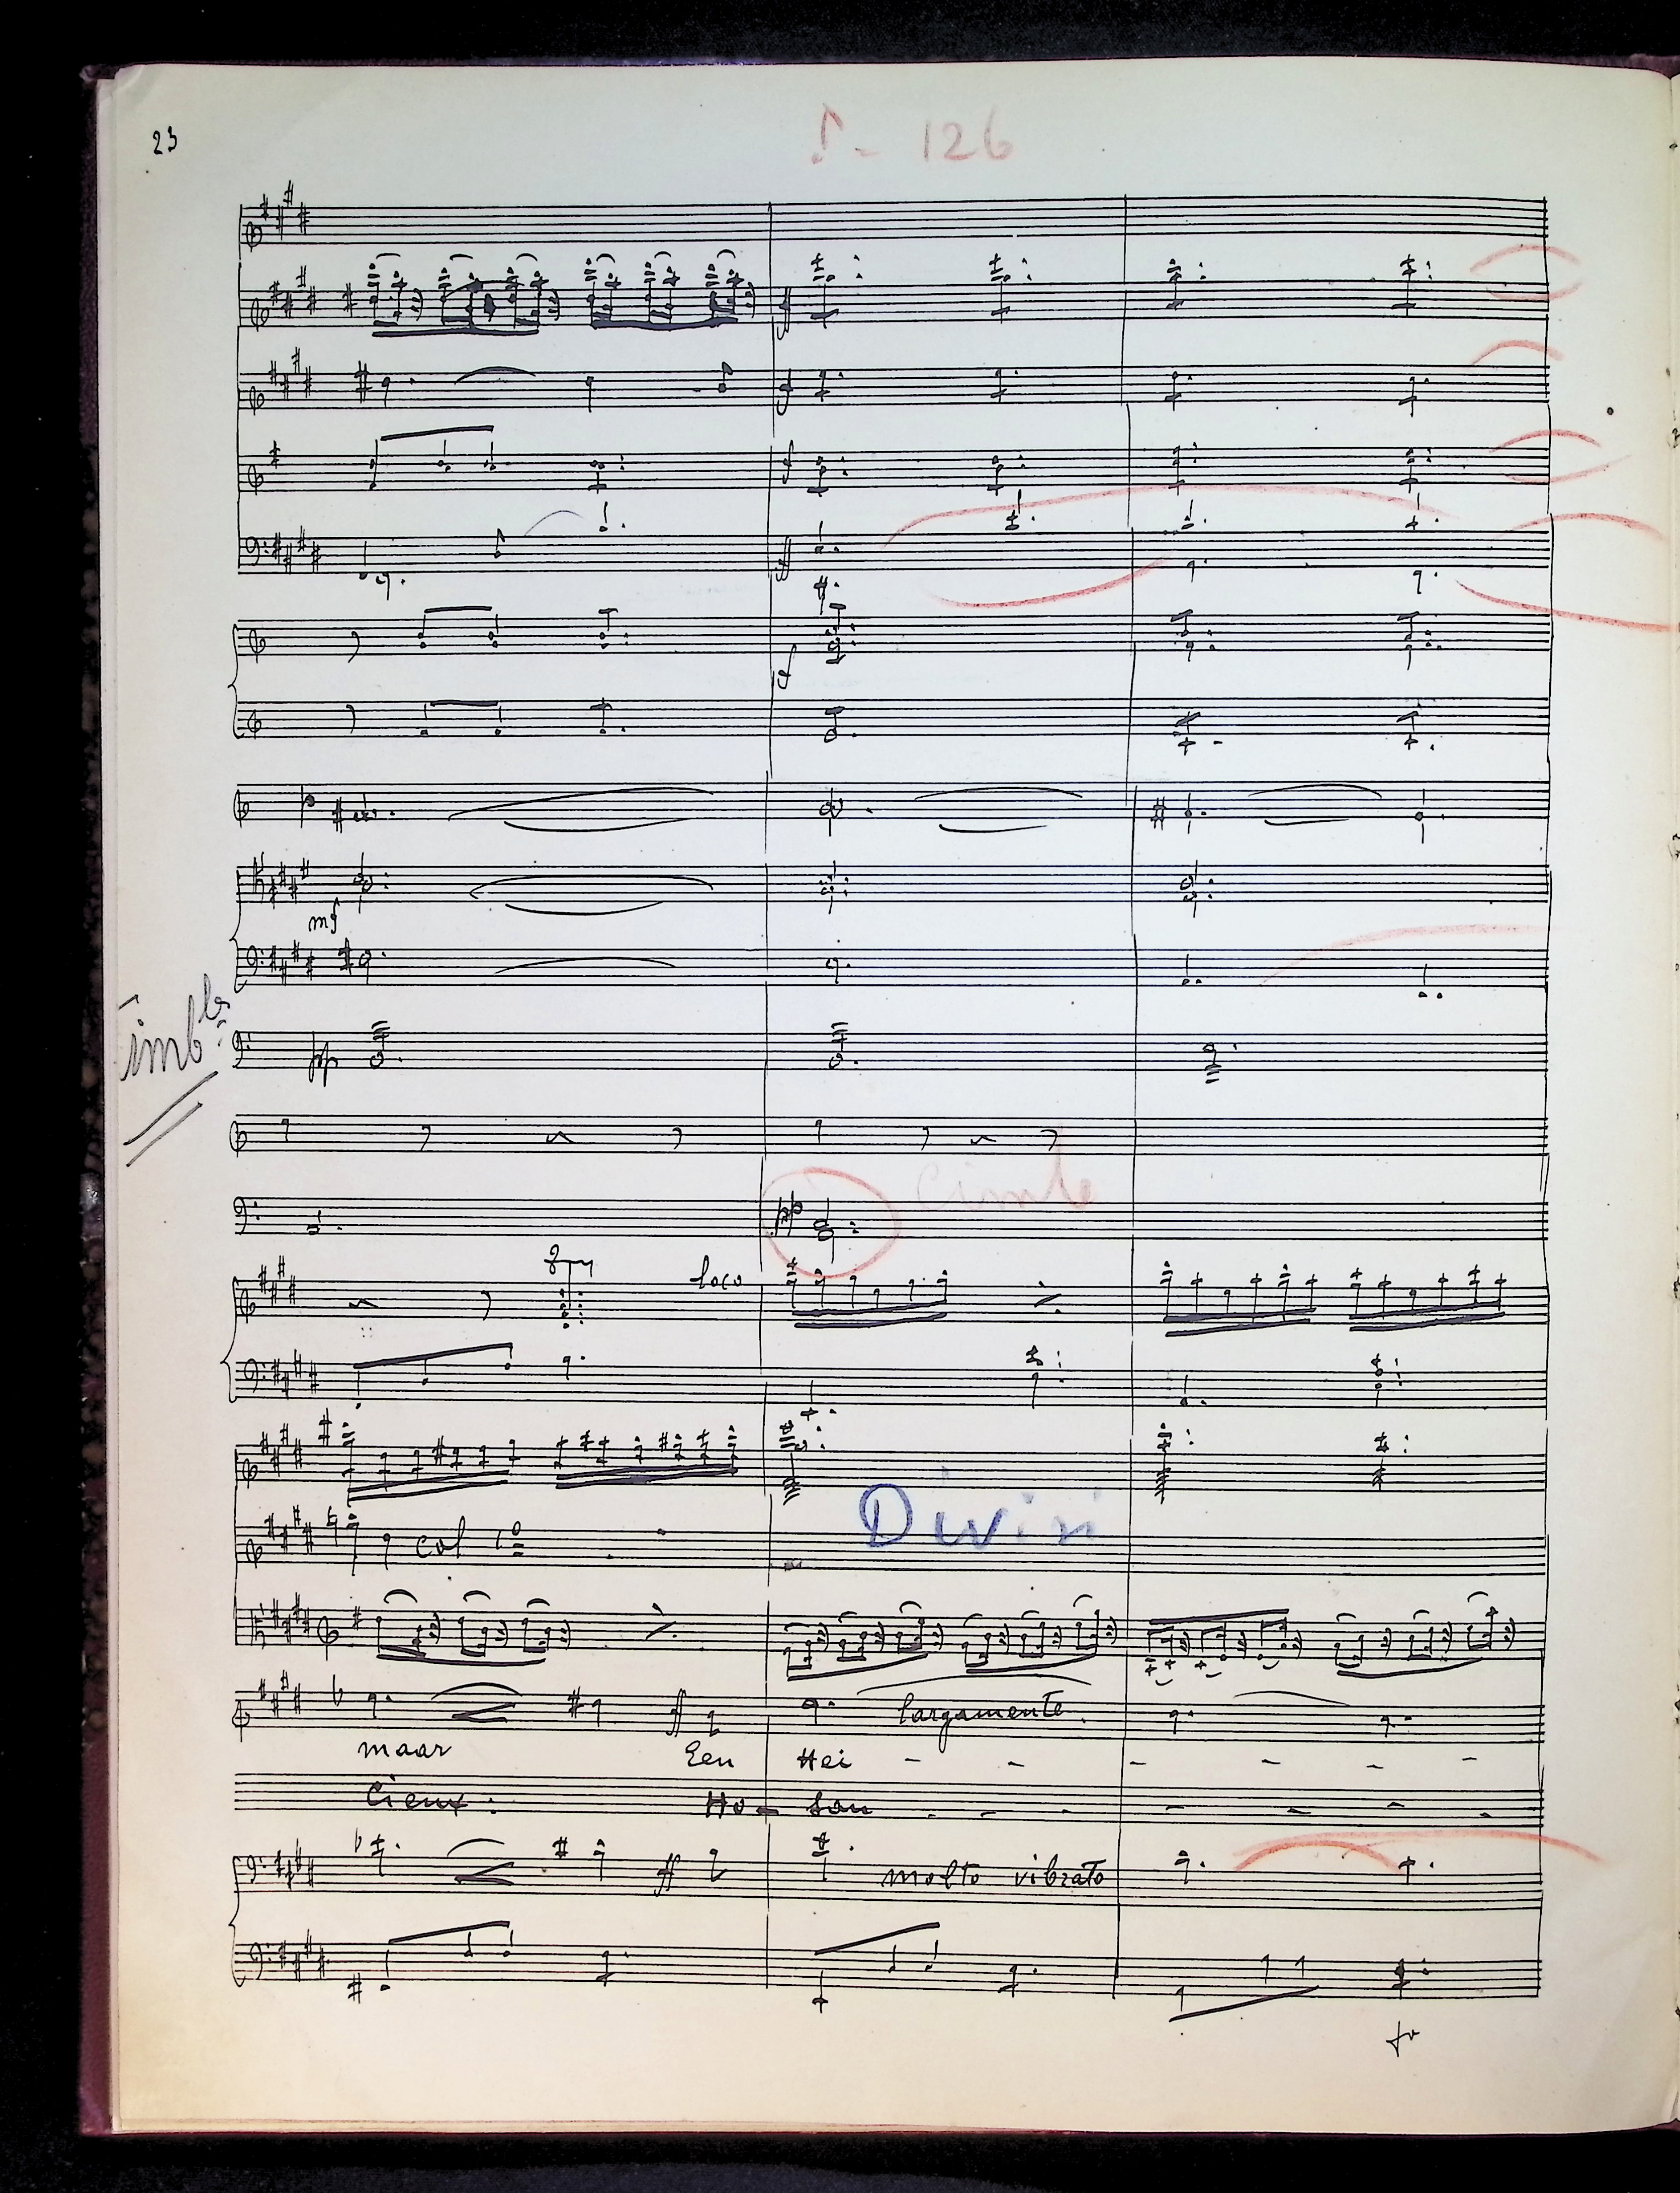 23
♪ = 126
mf
Timb.le
pp
Cimb
pp
8
loco
Divisi
col 1º
largamente
maar Een Hei - - - - - -
Cieux : Ho - san - - - - - - -
ff molto vibrato